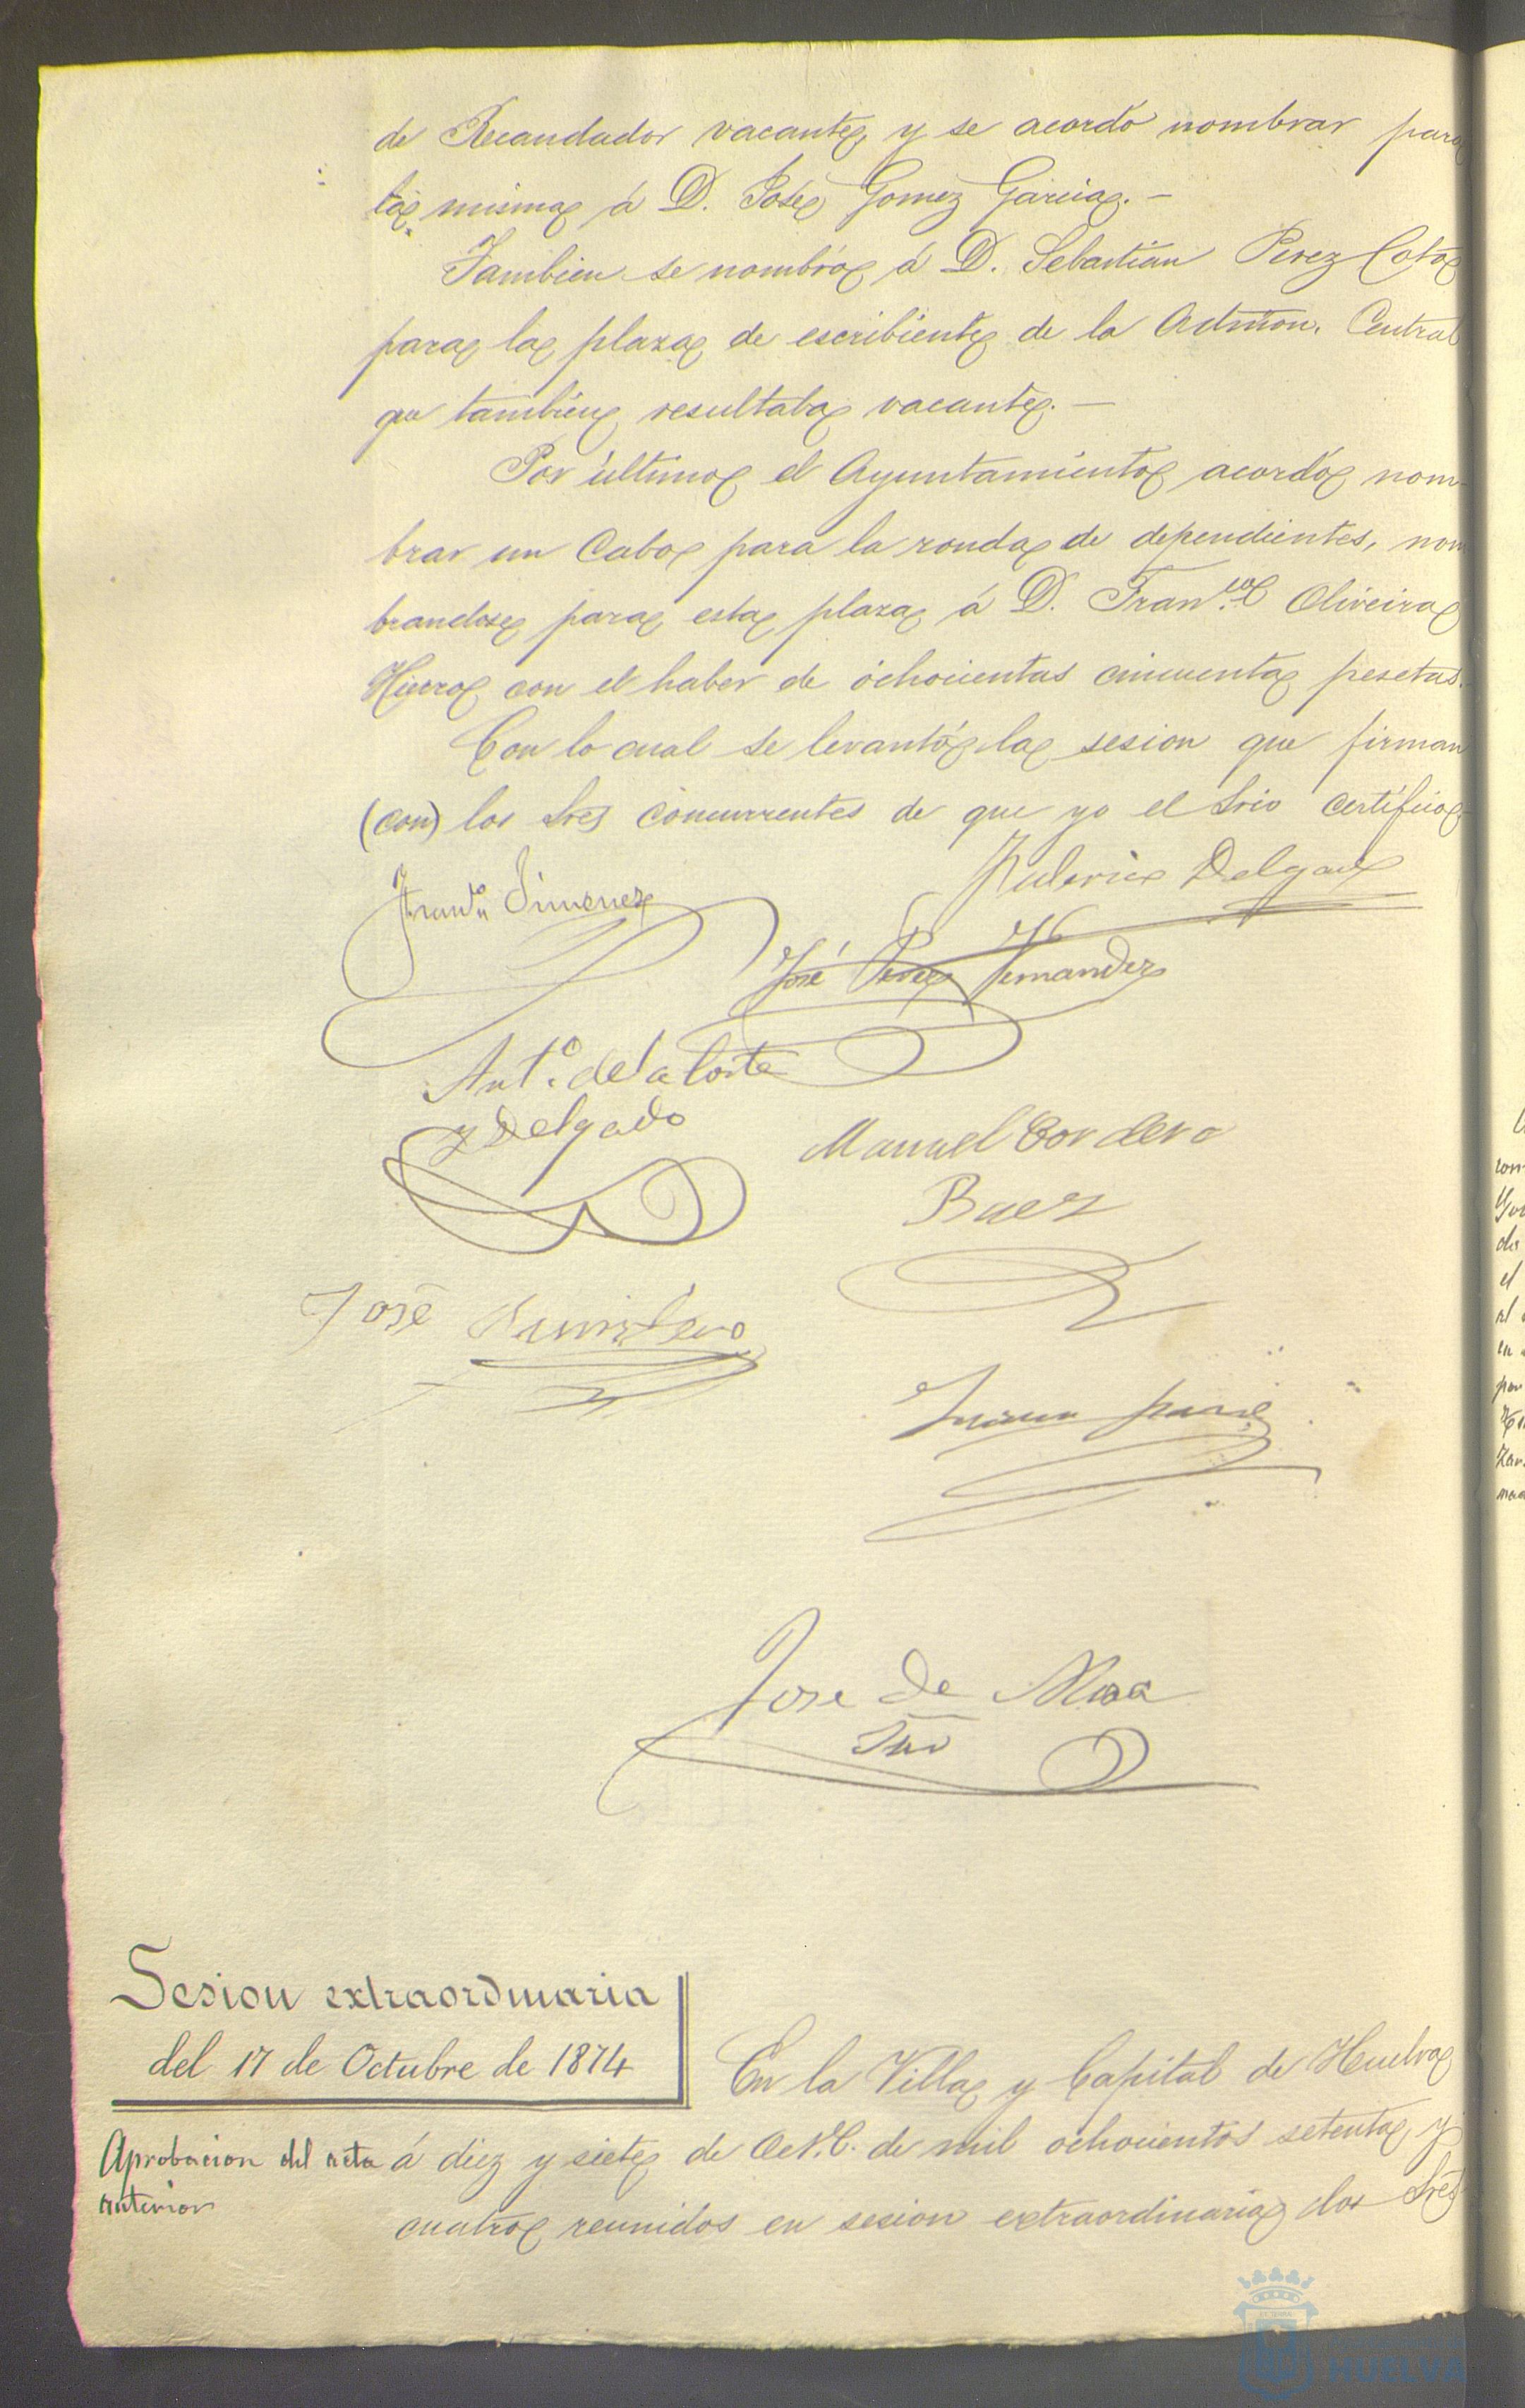 de Recaudador vacante, y se acordó nombrar para
la misma á D. José Gomez Garcia.—
Tambien se nombró á D. Sebastian Perez Coto
para la plaza de escribiente de la Admon. Central
que tambien resultaba vacante.—
Por último el Ayuntamiento acordó nom-
brar un Cabo para la ronda de dependientes, nom
brandose para esta plaza á D. Fran.co Oliveira
Hierro con el haber de ochocientas cincuenta pesetas.
Con lo cual se levantó la sesion que firman
(con) los Sres concurrentes de que yo el Srio certifico
Jimenez
Delgado
José Perez Fernandez
Ant.o de la Corte
y Delgado
Manuel Cordero
Baez
José
Jose de
Srio
Sesion extraordinaria
del 17 de Octubre de 1874
En la Villa y Capital de Huelva
Aprobacion del acta
anterior
á diez y siete de Oct.e de mil ochocientos setenta y
cuatro reunidos en sesion extraordinaria los Sres
HUELVA